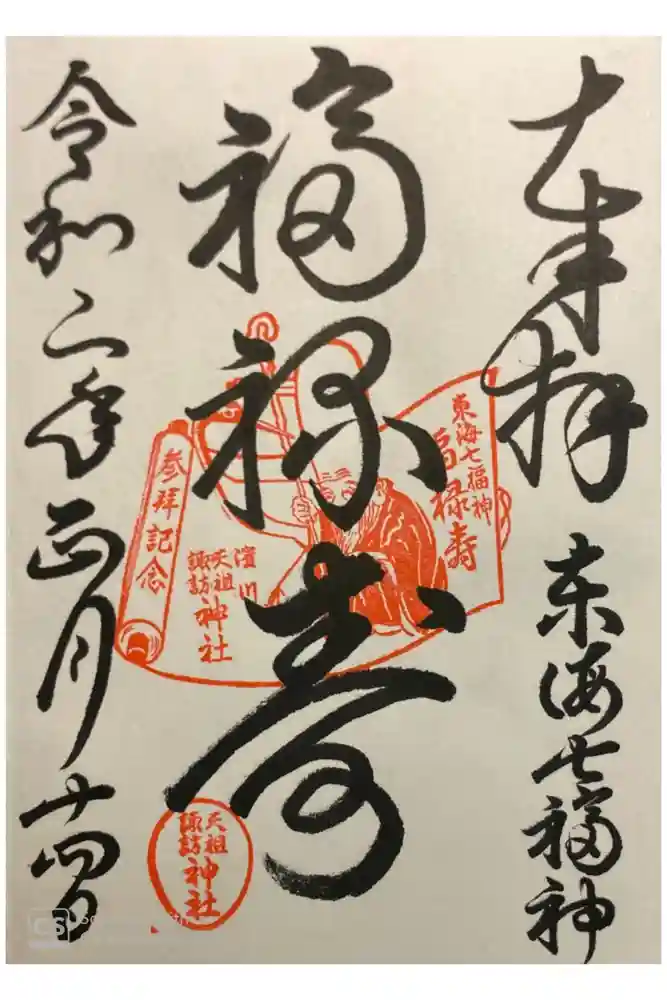 奉拝
東海七福神
福禄寿
令和二年正月十四日
東海七福神
福禄寿
濱川
天祖
諏訪
神社
参拝記念
天祖
諏訪
神社
CS